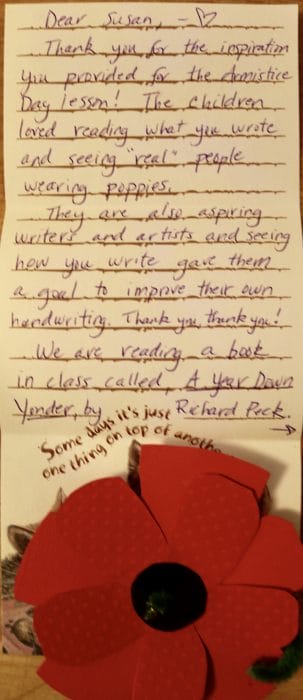 Dear Susan, – ♡
Thank you for the inspiration
you provided for the Armistice
Day lesson! The children
loved reading what you wrote
and seeing "real" people
wearing poppies.
They are also aspiring
writers and artists and seeing
how you write gave them
a goal to improve their own
handwriting. Thank you, thank you!
We are reading a book
in class called, A Year Down
Yonder, by Richard Peck.
→
Some days it's just
one thing on top of another